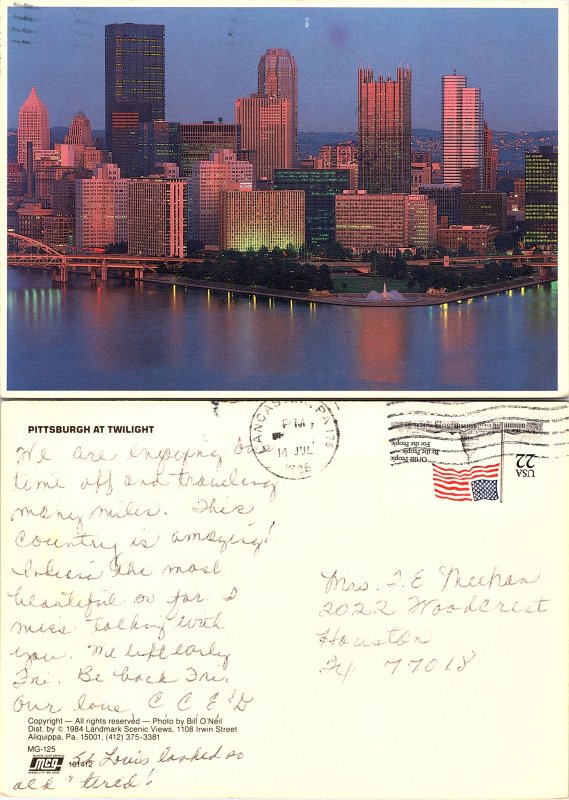 PITTSBURGH AT TWILIGHT
We are enjoying our
time off and traveling
many miles. This
Country is amazing!
Indiana the most
beautiful so far. I
miss talking with
you. We left early
Fri. Be back Fri.
Our love, C C E & D
St Louis looked so
old "tired"!
Copyright — All rights reserved — Photo by Bill O'Neil
Dist. by © 1984 Landmark Scenic Views, 1108 Irwin Street
Aliquippa, Pa. 15001, (412) 375-3381
MG-125
MCG
181412
LANCASTER, PA 176
PM
14 JUL
1986
Of the People
By the People
For the People
USA
22
Mrs. T. E Meehan
2022 Woodcrest
Houston
TX 77018